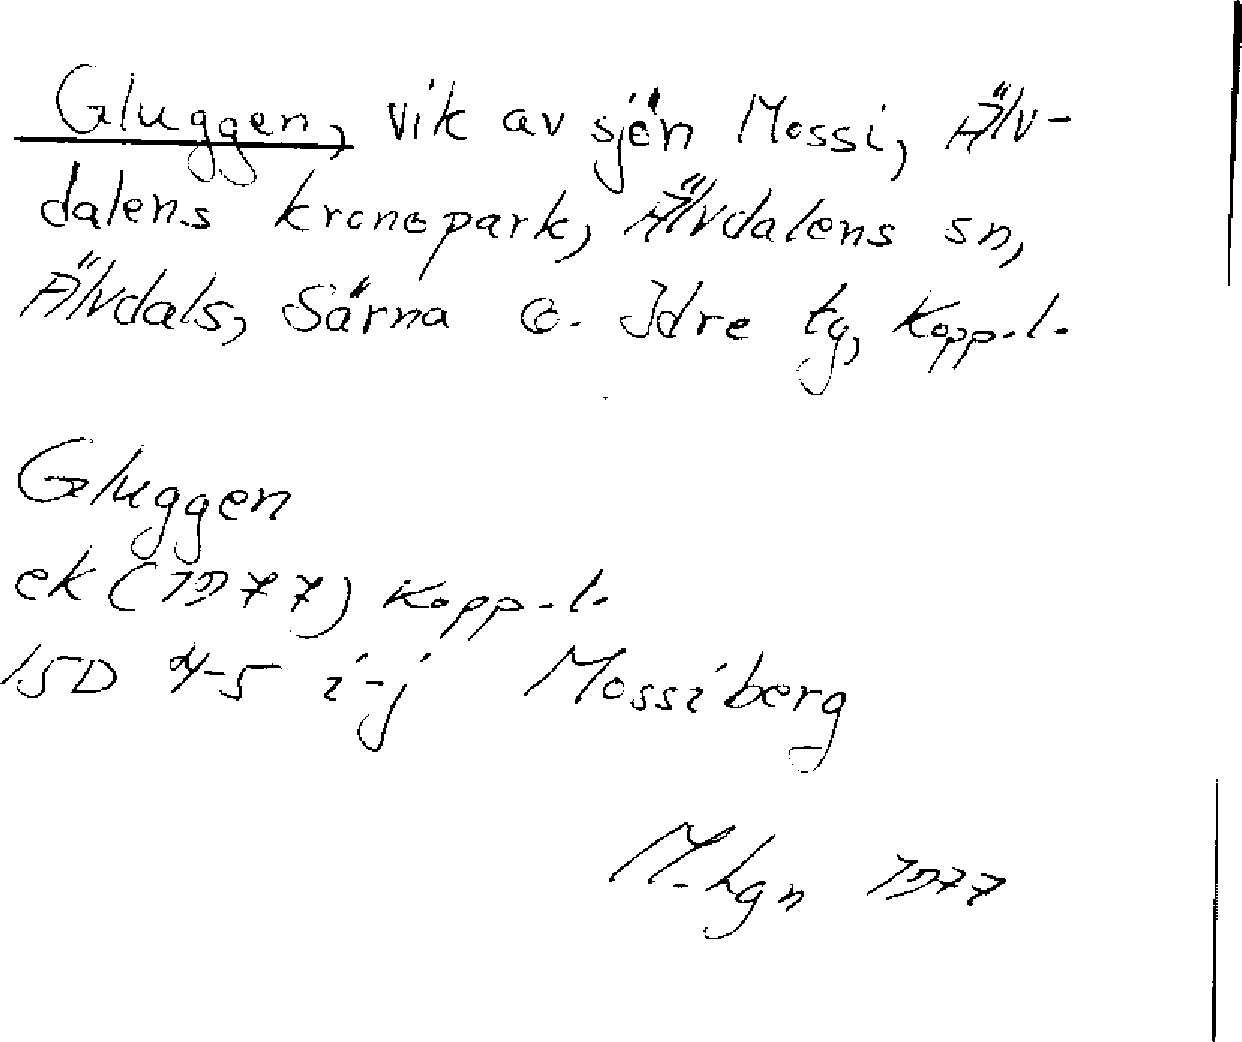 Gluggen, vik av sjön Mossi, Älv-
dalens kronopark, Älvdalens sn,
Älvdals, Särna o. Idre tg, Kopp.l.
Gluggen
ek (1977) Kopp.l.
15D 4-5 i-j Mossiberg
M.hgn 1977